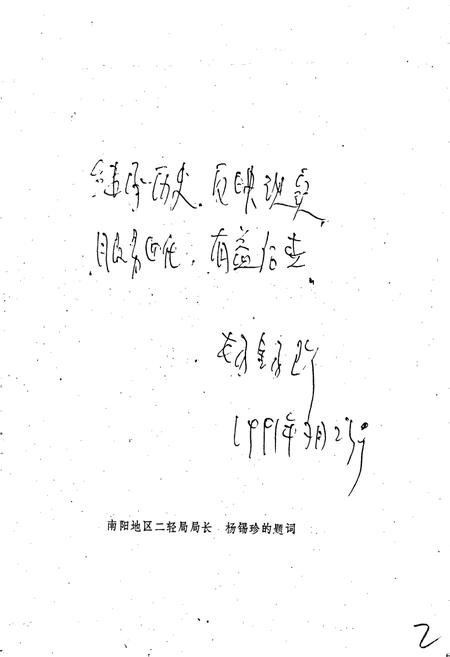 继承历史．反映现实．
服务四化．有益后世
杨锡珍
1991年3月25日
南阳地区二轻局局长 杨锡珍的题词
2